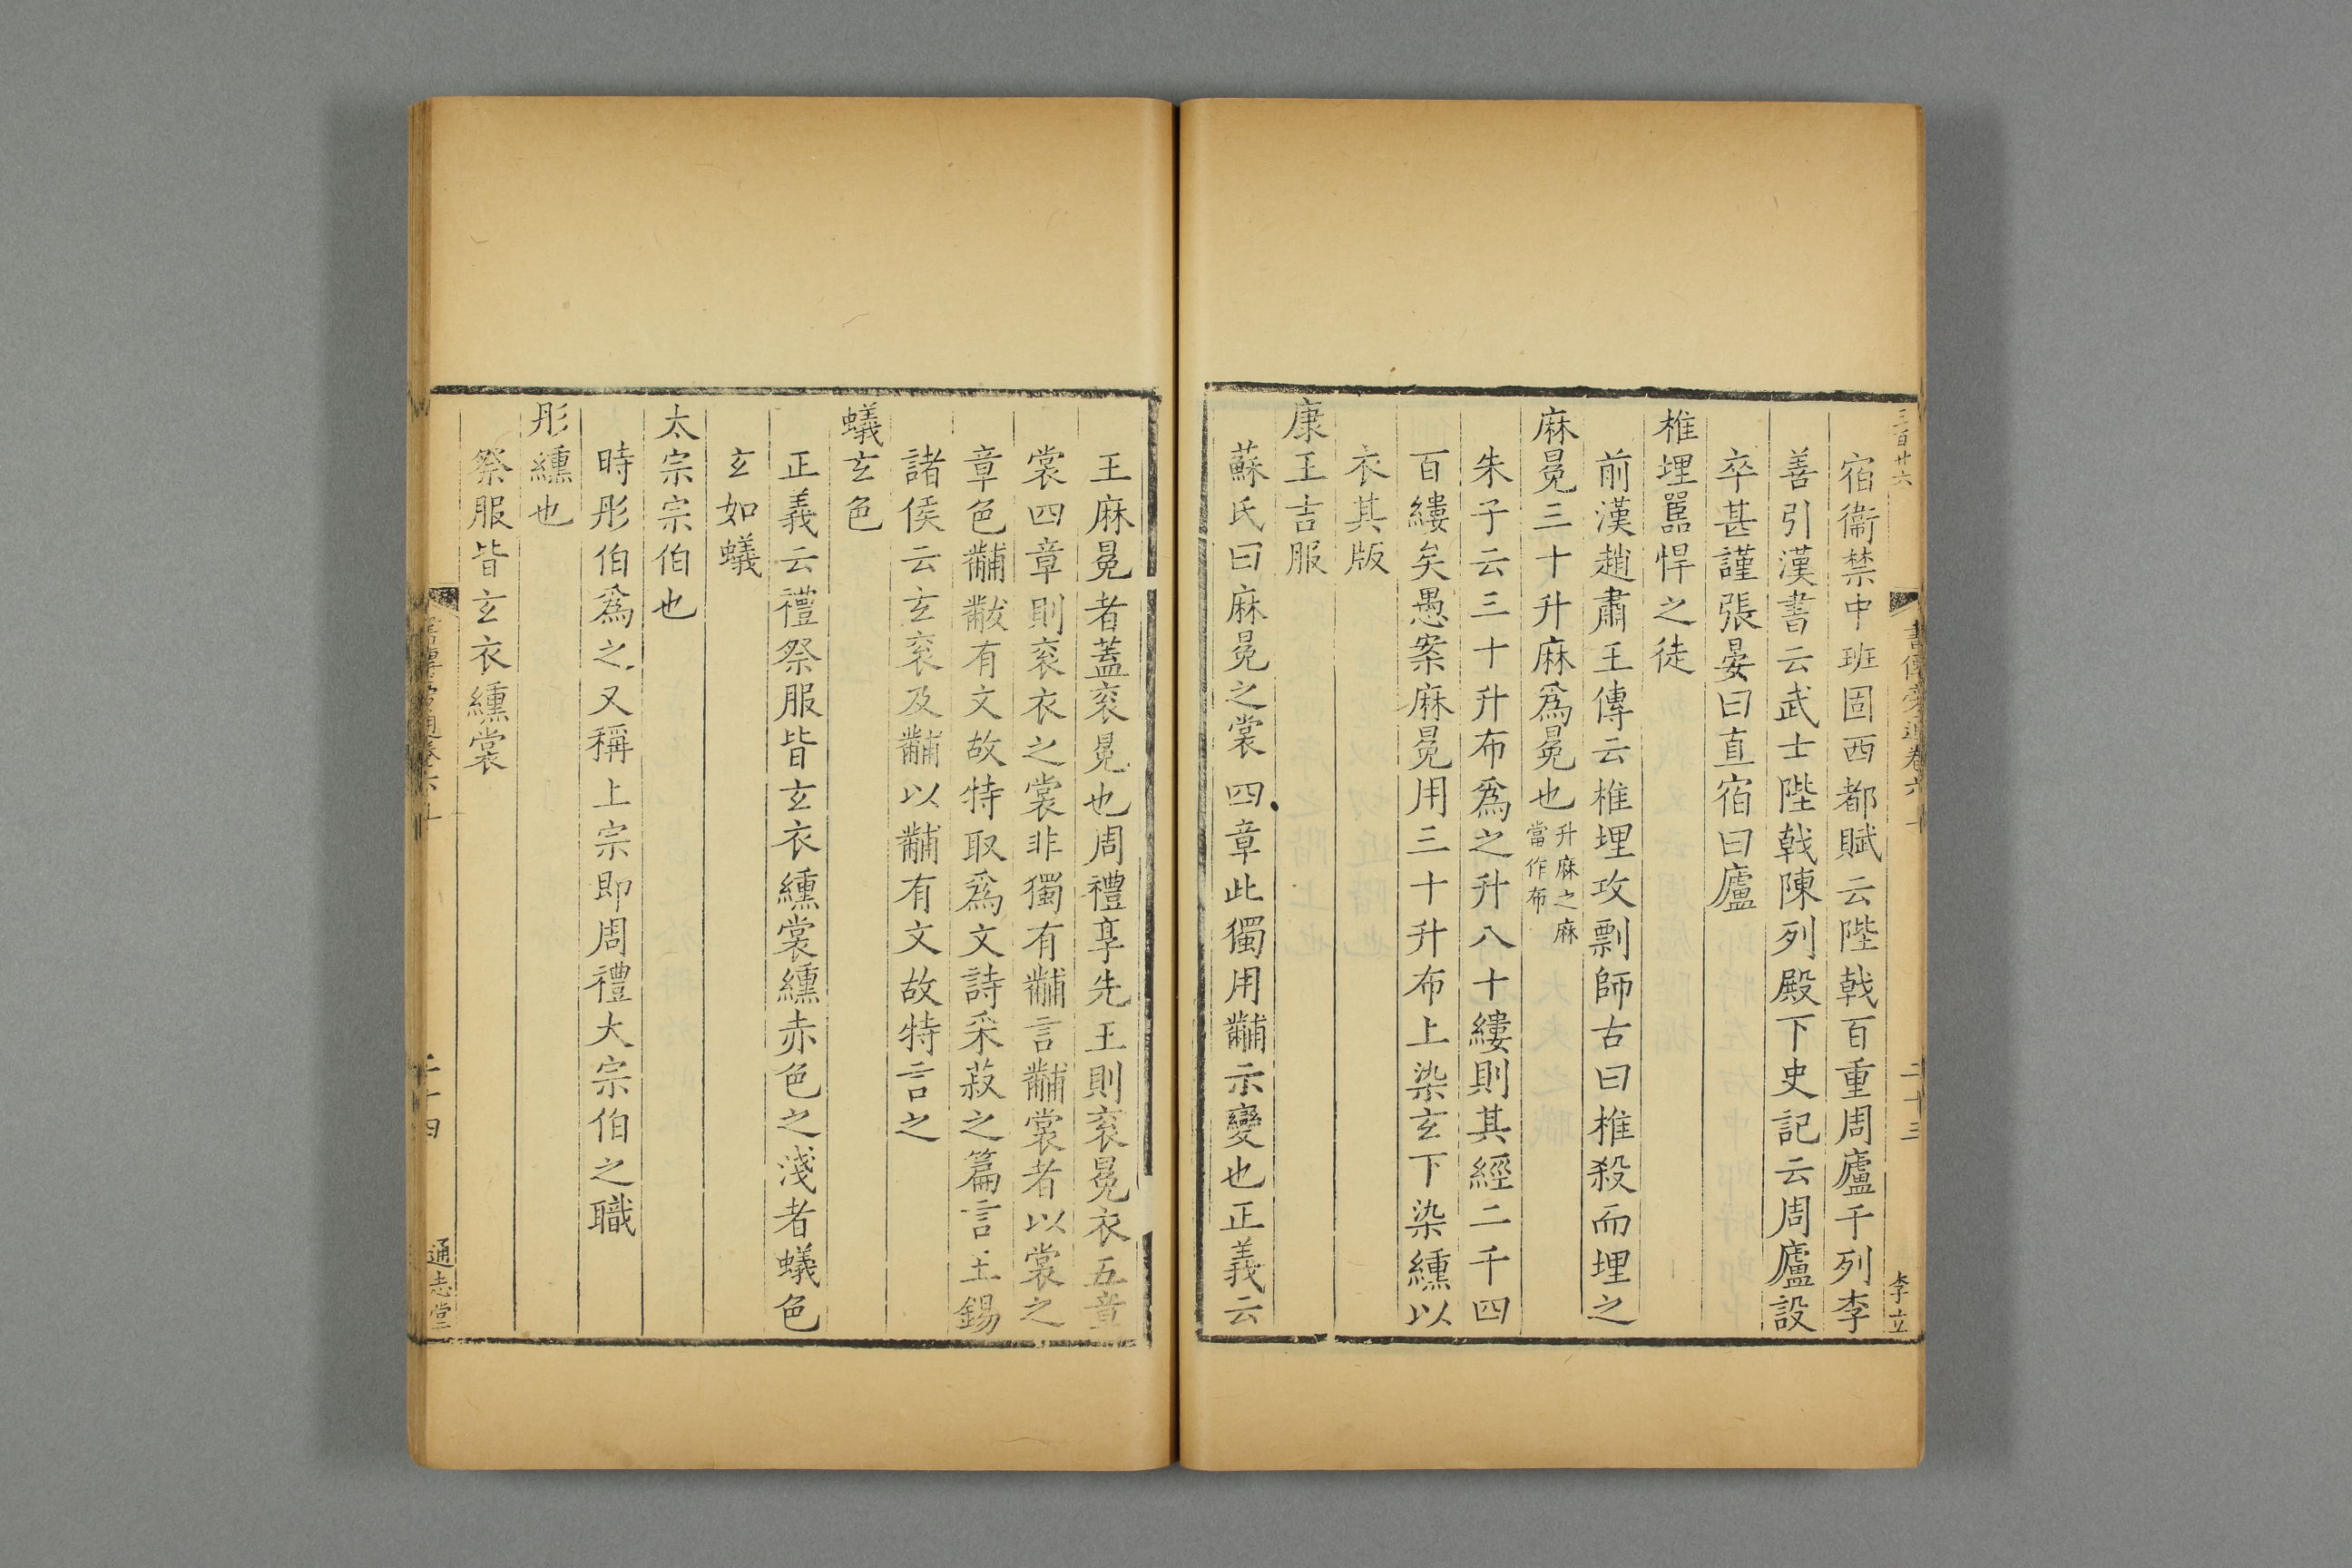 三百廿六
書傳旁通卷六
二十三
李立
宿衞禁中班固西都賦云陛戟百重周廬千列李
善引漢書云武士陛戟陳列殿下史記云周廬設
卒甚謹張晏曰直宿曰廬
椎埋嚚悍之徒
前漢趙肅王傳云椎埋攻剽師古曰椎殺而埋之
麻冕三十升麻爲冕也升麻之麻當作布
朱子云三十升布爲之升八十縷則其經二千四
百縷矣愚案麻冕用三十升布上染玄下染纁以
衣其版
康王吉服
蘇氏曰麻冕之裳四章此獨用黼示變也正義云
王麻冕者蓋衮冕也周禮享先王則衮冕衣五章
裳四章則衮衣之裳非獨有黼言黼裳者以裳之
章色黼黻有文故特取爲文詩采菽之篇言王錫
諸侯云玄衮及黼以黼有文故特言之
蟻玄色
正義云禮祭服皆玄衣纁裳纁赤色之淺者蟻色
玄如蟻
太宗宗伯也
時彤伯爲之又稱上宗即周禮大宗伯之職
彤纁也
祭服皆玄衣纁裳
二十四
通志堂